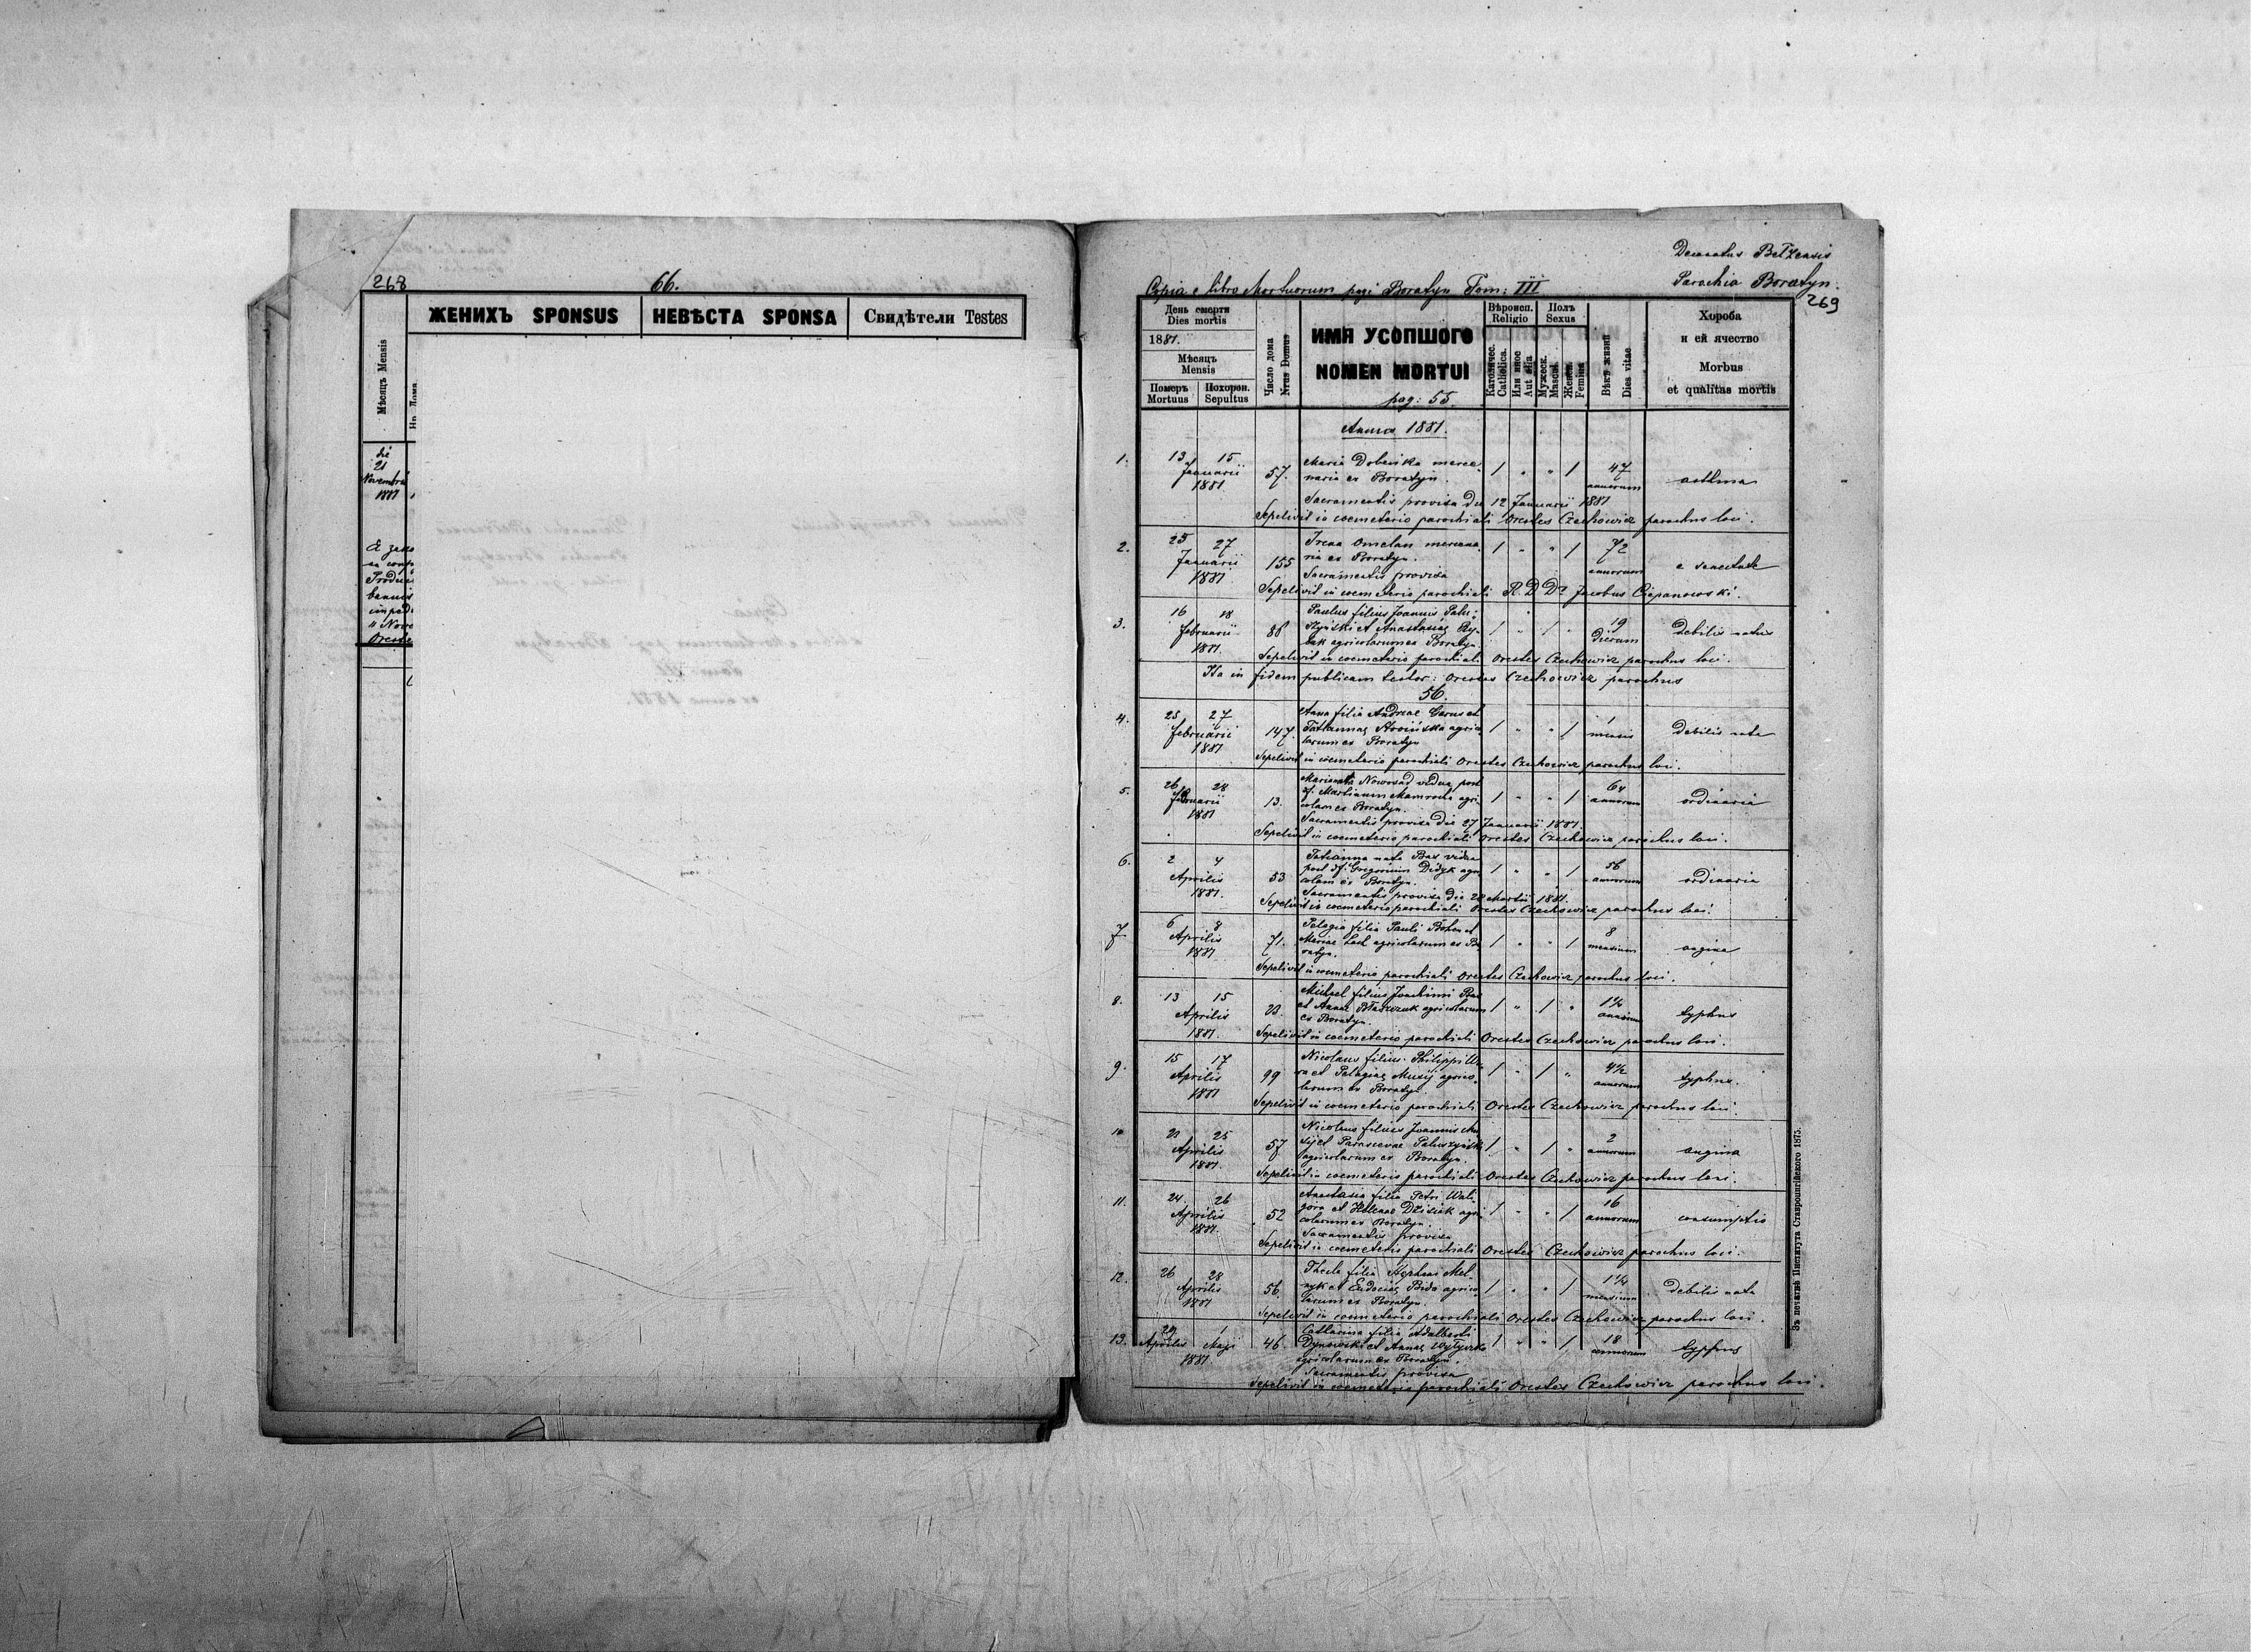 268
66.
Мѣсяцъ Mensis
Нр. Дома
ЖЕНИХЪ SPONSUS
НЕВѢСТА SPONSA
Свидѣтели Testes
die
21
Novembris
1881
Decanatus Bełzensis
Parochia Boratyn.
Copia e libro Mortuorum pagi Boratyn Tom: III
269
День смерти
Dies mortis
1881.
Мѣсяцъ
Mensis
Померъ
Mortuus
Похорон.
Sepultus
Число дома
Nrus Domus
ИМЯ УСОПШОГО
NOMEN MORTUI
pag: 55.
Вѣроисп.
Religio
Католичес.
Catholica.
Или иное
Aut alia
Полъ
Sexus
Мужеск.
Mascul.
Женск.
Femin.
Вѣкъ жизни
Dies vitae
Хороба
и ей ячество
Morbus
et qualitas mortis
Anno 1881.
1. 13 15 Januarii 1881 57. Maria Dobenka merce-
naria ex Boratyn. / " " / 47 annorum asthma
Sacramentis provisa die 12 Januarii 1881
Sepelivit in coemeterio parochiali Orestes Czechowicz parochus loci.
2. 25 27 Januarii 1881 155 Irena Omelan mercena-
ria ex Boratyn. / " " / 72 annorum e senectute
Sacramentis provisa
Sepelivit in coemeterio parochiali R. D. Dr Jacobus Ciepanowski.
3. 16 18 Februarii 1881. 88 Paulus filius Joannis Palu-
szyński et Anastasiae Ry-
bak agricolarum ex Boratyn. / " / " 19 dierum debilis natus
Sepelivit in coemeterio parochiali Orestes Czechowicz parochus loci.
Ita in fidem publicam testor: Orestes Czechowicz parochus
56.
4. 25 27 Februarii 1881 147. Anna filia Andreae Garus et
Tatiannae agrico-
larum ex Boratyn / " " / 1 mensis debilis nata
Sepelivit in coemeterio parochiali Orestes Czechowicz parochus loci.
5. 26 28 Februarii 1881 13. Marianna Nowosad vidua post
df. Martianum agri-
colam ex Boratyn. / " " / 64 annorum ordinaria
Sacramentis provisa die 27 Januarii 1881.
Sepelivit in coemeterio parochiali Orestes Czechowicz parochus loci.
6. 2 4 Aprilis 1881. 53 Tatianna nata Bas vidua
post df. Gregorium Didyk agri-
colam ex Boratyn. / " " / 56 annorum ordinaria
Sacramentis provisa die 28 Martii 1881.
Sepelivit in coemeterio parochiali Orestes Czechowicz parochus loci.
7. 6 8 Aprilis 1881 71. Pelagia filia Pauli et
Mariae agricolarum ex Bo-
ratyn. / " " / 8 mensium angina
Sepelivit in coemeterio parochiali Orestes Czechowicz parochus loci.
8. 13 15 Aprilis 1881. Michael filius Joachimi Bas
et Annae Błaszczuk agricolarum
ex Boratyn. / " / " annorum typhus
Sepelivit in coemeterio parochiali Orestes Czechowicz parochus loci.
9. 15 17 Aprilis 1881 99 Nicolaus filius Philippi
et Pelagiae Musij agrico-
larum ex Boratyn. / " / " 4½ annorum typhus.
Sepelivit in coemeterio parochiali Orestes Czechowicz parochus loci.
10. 25 Aprilis 1881. 57 Nicolaus filius Joannis Mu-
sij et Parascevae Paluszyńska
agricolarum ex Boratyn. / " / " 2 annorum angina
Sepelivit in coemeterio parochiali Orestes Czechowicz parochus loci.
11. 24. 26 Aprilis 1881. 52 Anastasia filia Petri Wali-
gora et Helenae Dzisiak agri-
colarum ex Boratyn. / " " / 16 annorum consumptio
Sacramentis provisa
Sepelivit in coemeterio parochiali Orestes Czechowicz parochus loci.
12. 26 28 Aprilis 1881 56. Thecla filia Stephani Mel-
nyk et Eudociae Bida agrico-
larum ex Boratyn. / " " / 1¼ mensium debilis nata
Sepelivit in coemeterio parochiali Orestes Czechowicz parochus loci.
13. 29 Aprilis 1 Maji 1881. 46. Catharina filia Adalberti
Dynowski et Annae
agricolarum ex Boratyn. / " " / 18 annorum typhus
Sacramentis provisa
Sepelivit in coemeterio parochiali Orestes Czechowicz parochus loci.
Зъ печатнѣ Института Ставропигійского 1875.